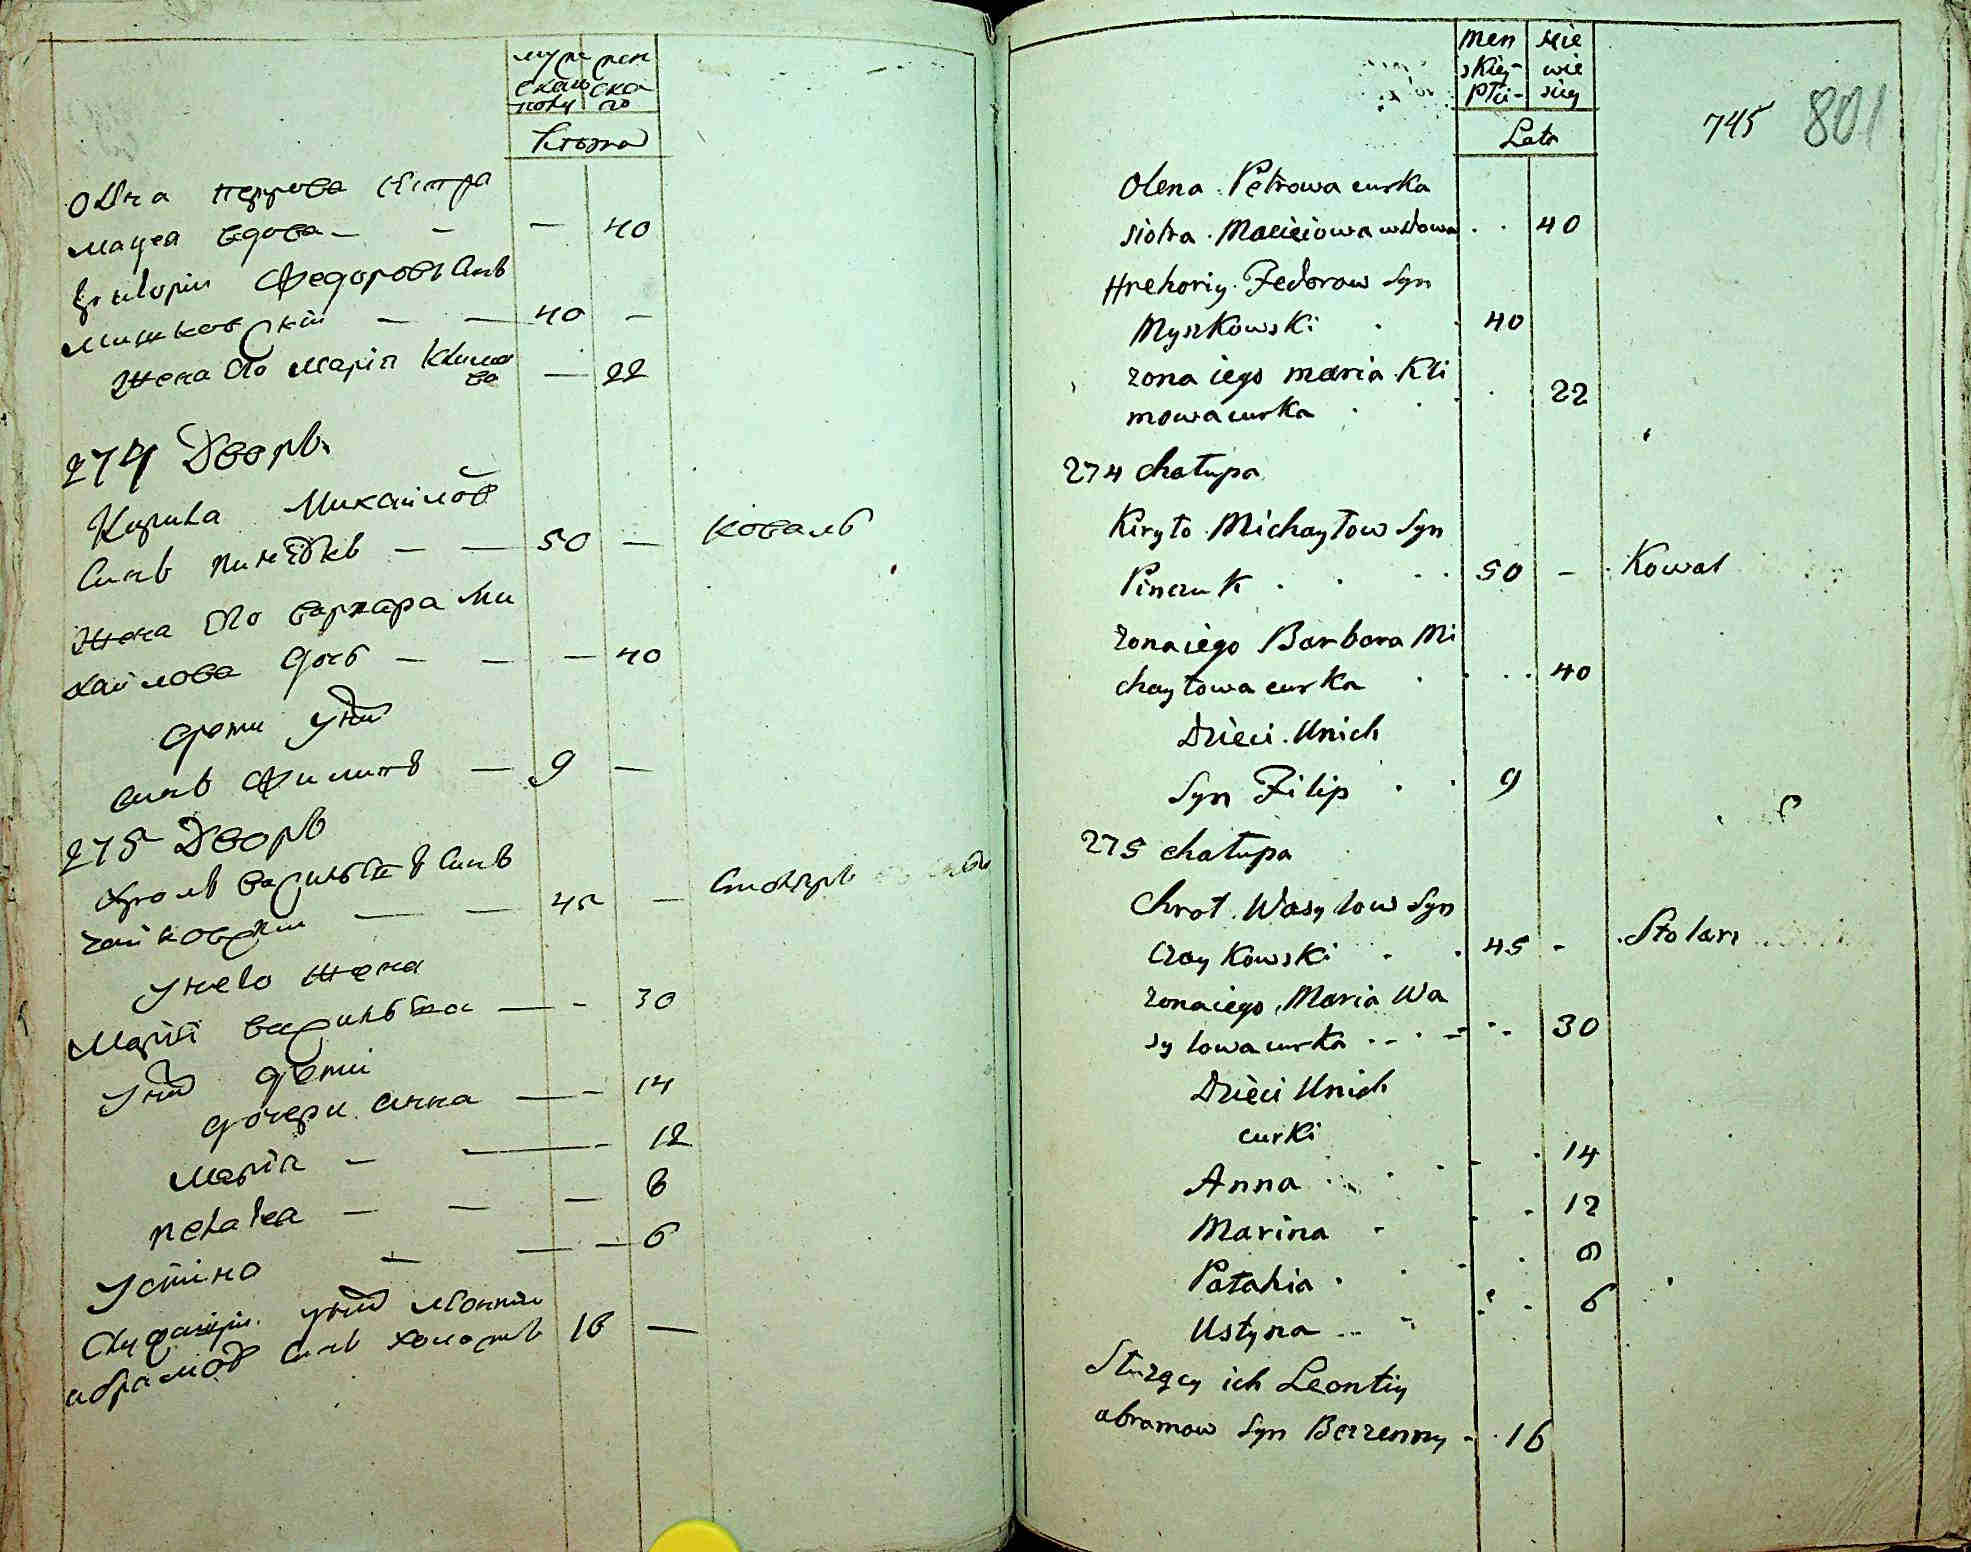 мужскаго полу
женскаго
Олена петрова сестра
мацея вдова — — — 40
Григорій Федоровъ Сынъ
мишковскій — — 40 —
Жена Его Марія Климо
ва — 22
274 Дворъ.
Кирила Михайловъ
Сынъ пинчукъ — — 50 — коваль
Жена Его варвара Ми
хайлова дочь — — — 40
дети у них
сынъ Филипъ — 9 —
275 Дворъ
Васильевъ Сынъ
чайковскій — — 45 — столяръ
У него жена
Марія васильева — - 30
У них дети
дочери анна — - 14
Марія — — - 12
пелагея — — — 8
Устина — — — 6
У них леонтій
абрамов Сынъ холостъ 16 —
men skiey płci
nie wie siey
Lata
745
801
Olena Petrowa curka
siostra Macieiowa wdowa . . 40
Hrehoriy Fedorow Syn
Myszkowski . . 40
zona iego maria Kli
mowa curka . . . 22
274 chałupa
Kiryło Michayłow Syn
Pinczuk . . . . 50 - Kowal
zona iego Barbara Mi
chayłowa curka . . . . 40
Dzieci Unich
Syn Filip . . 9
275 chałupa
Chrol Wasylow Syn
Czaykowski . . 45 - Stolarz
zona iego Maria Wa
sylowa curka . . . . 30
Dzieci Unich
curki
Anna . . . . 14
Marina - . . 12
Patahia . . . . 8
Ustyna . . . . 6
Służący ich Leontiy
abramow Syn Bezzenny - . 16